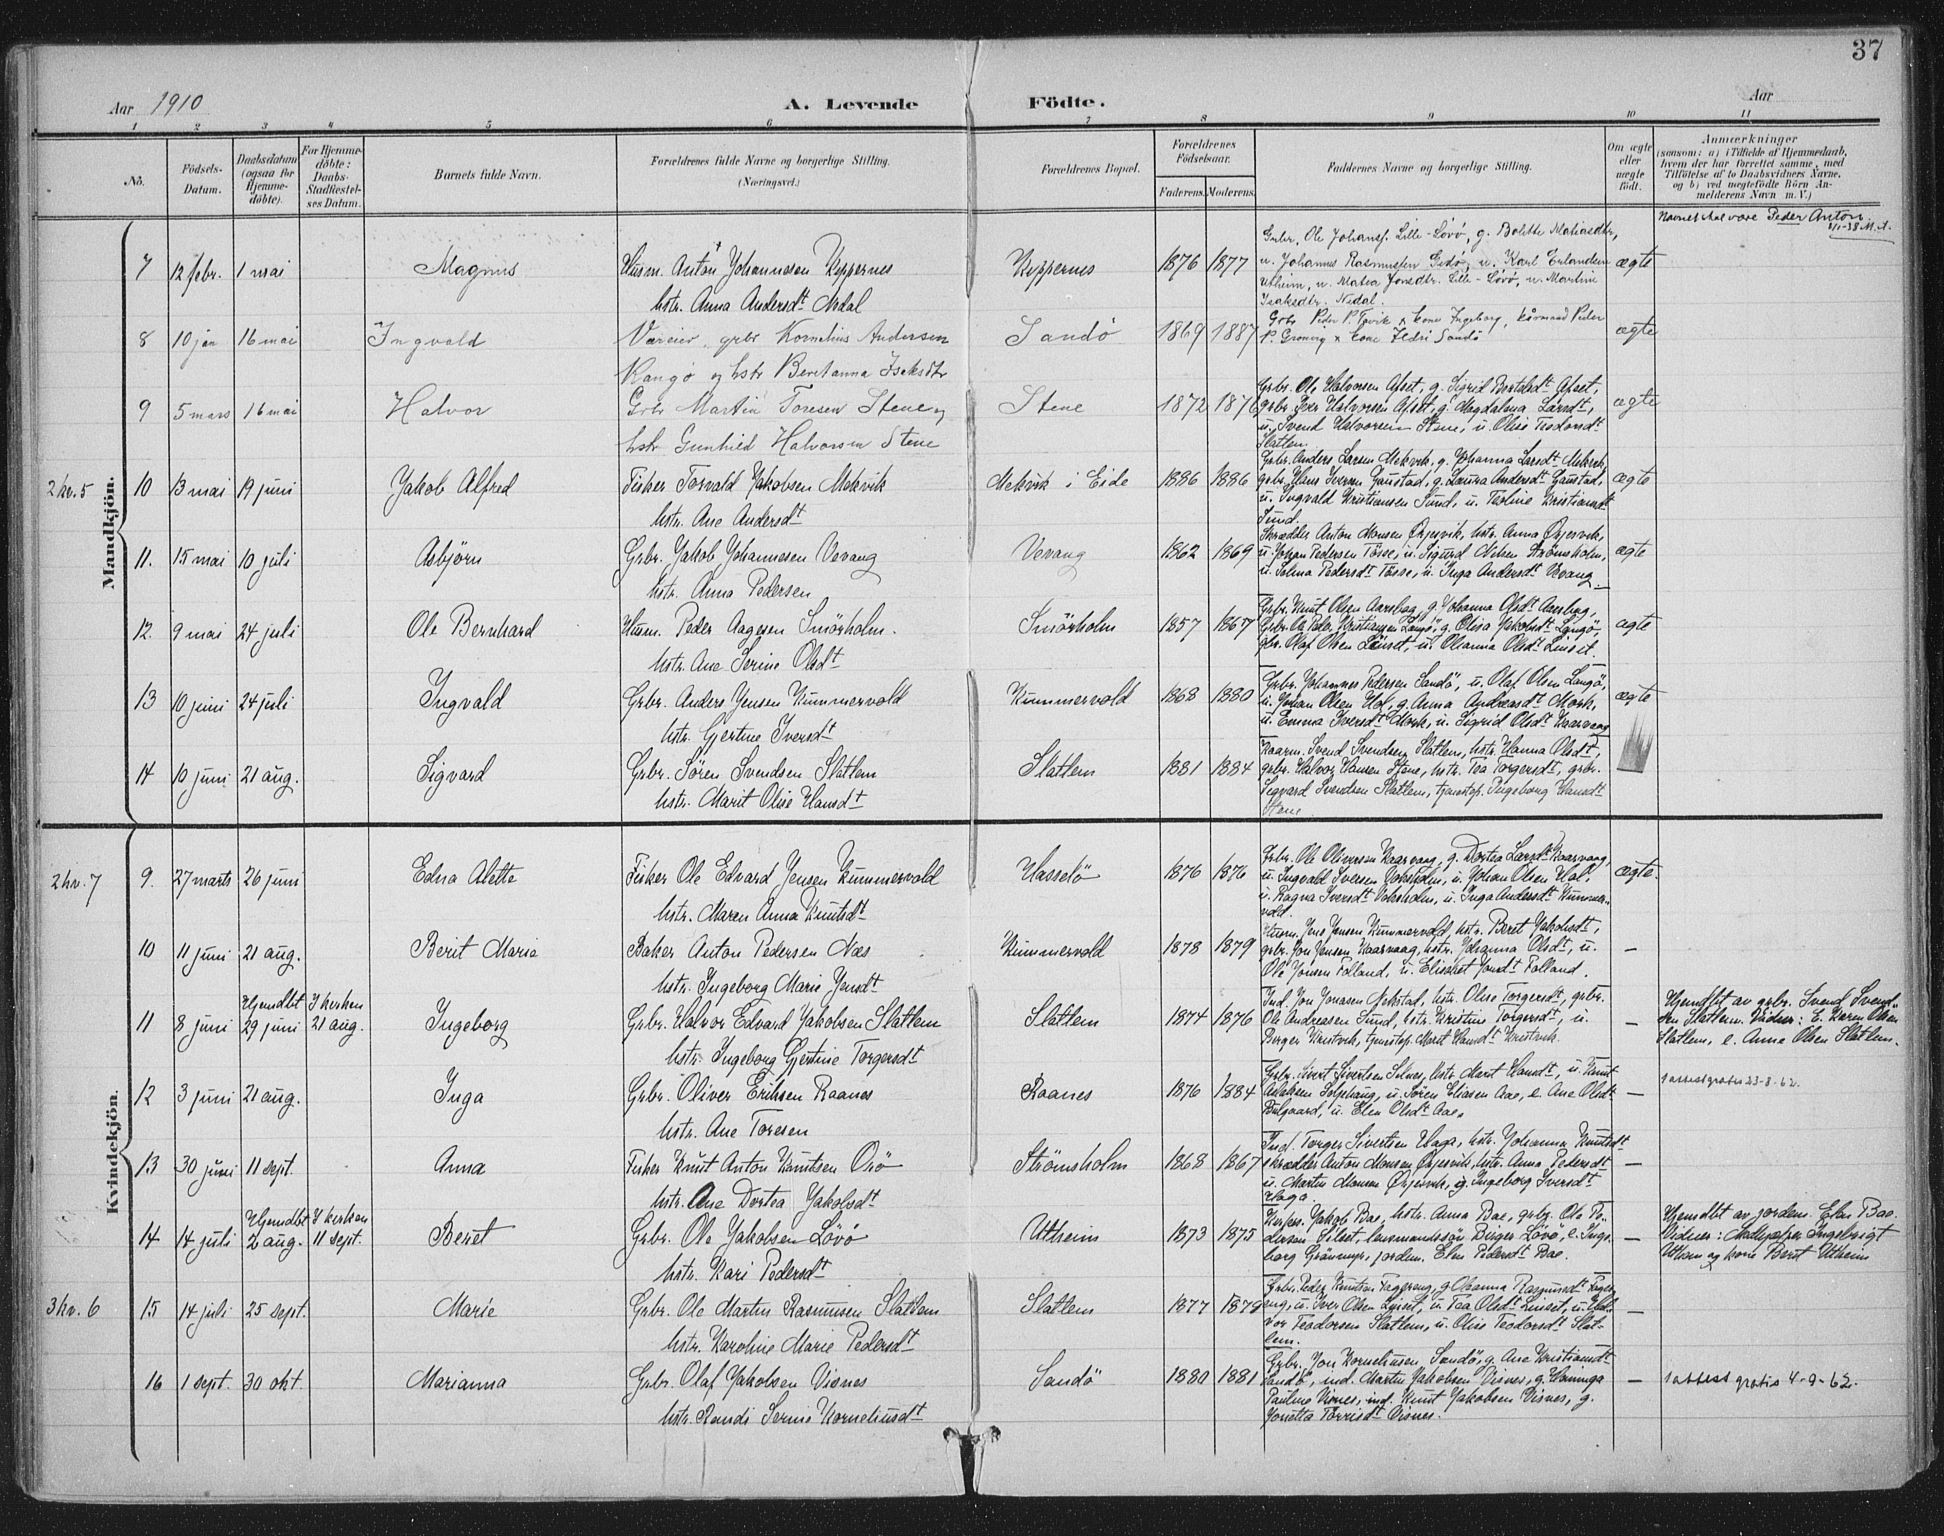 37
Aar 1910 A. Levende Födte. Aar
1 2 3 4 5 6 7 8 9 10 11
No.
Födsels-Datum.
Daabsdatum (ogsaa for Hjemme-döbte).
For Hjemme-döbte: Daabs-Stadfæstel-ses Datum.
Barnets fulde Navn.
Forældrenes fulde Navne og borgerlige Stilling. (Næringsvei.)
Forældrenes Bopæl.
Forældrenes Födselsaar.
Faderens. Moderens.
Faddernes Navne og borgerlige Stilling.
Om ægte eller uægte födt.
Anmærkninger (saasom: a) i Tilfælde af Hjemmedaab, hvem der har forrettet samme, med Tilföielse af to Daabsvidners Navne, og b) ved uægtefödte Börn An-melderens Navn m. V.)
Mandkjön.
7 12 febr. 1 mai Magnus Husm. Anton Johannesen Kyppernes Kyppernes 1876 1877 ægte
hstr. Anna Andersdt
Grbr. Ole Johansf. Lille-Lövö, g. Bolette Matiasdtr,
u. Johannes Rasmussen u. Karl Erlandsen
Utheim, u. Matea Jonsdtr. Lille-Lövö, u. Martine
Isaksdtr. Nedal.
Navnet skal være Peder Anton.
8 10 jan 16 mai Ingvald grbr Kornelius Andersen Sandö 1869 1887 ægte
og hstr Beretanna
Grbr Peder P. x kone Ingeborg, kårmand Peder
P. x kone Sandö
9 5 mars 16 mai Halvor Grbr Martin Toresen Stene og Stene 1872 1876 ægte
hstr Gunhild Halvorsen Stene
Grbr. Ole Halvorsen Afset, g. Sigrid Afset,
grbr. Iver Halvorsen Afset, g. Magdalena Larsdt,
u. Svend Halvorsen Stene, u. Olise Teodorsdt
Slatlem.
2 kv. 5 10 13 mai 19 juni Jakob Alfred Fisker Torvald Jakobsen Mekvik Mekvik i Eide 1886 1886 ægte
hstr. Ane Andersdt
Grbr. Anders Larsen Mekvik, g. Johanna Larsdt Mekvik,
grbr. Hans Iversen Gaustad, g. Laura Andersdt Gaustad,
u. Ingvald Kristiansen Sund, u. Kristiansdt
Sund.
11. 15 mai 10 juli Asbjörn Grbr. Jakob Johannesen Vevang Vevang 1862 1869 ægte
hstr. Anna Pedersen
Skrædder Anton Monsen Örjesvik, hstr. Anna Örjesvik,
u. Johan Pedersen Tösse, u. Sigurd Nelsen Strömsholm,
u. Selma Pedersdt Tösse, u. Inga Andersdt Vevang.
12. 9 mai 24 juli Ole Bernhard Husm. Peder Aagesen Smörholm. Smörholm 1857 1867 ægte
hstr. Ane Serine Olsdt
Grbr. Knut Olsen Aarsbog, g. Johanna Olsdt Aarsbog,
Grbr. Ole Peder Kristiansen Langö, g. Olisa Jakobsdt Langö,
gbr. Olaf Olsen Linset, u. Olianna Olsdt Linset.
13 10 juni 24 juli Ingvald Grbr. Anders Jensen Kummervold Kummervold 1868 1880 ægte
hstr. Gjertine Iversdt
Grbr. Johannes Pedersen Sandö, u. Olaf Olsen Langö,
u. Johan Olsen Hol, g. Anna Andreasdt Mork,
u. Emma Iversdt Mork, u. Sigrid Olsdt Kaarvaag
14 10 juni 21 aug. Sigvard Grbr. Sören Svendsen Slatlem Slatlem 1881 1884
hstr. Marit Olise Hansdt
Kaarm. Svend Svendsen Slatlem, hstr. Hanna Olsdt,
grbr. Halvor Hansen Stene, hstr. Tea Torgersdt, grbr.
Sigvard Svendsen Slatlem, tjenestep. Ingeborg Hansdt
Stene
Kvindekjön.
2 kv. 7 9. 27 marts 26 juni Edna Alette Fisker Ole Edvard Jensen Kummervold Hasselö 1876 1876 ægte.
hstr. Maren Anna Knutsdt
Grbr. Ole Oliversen Kaarvaag, g. Dortea Larsdt Kaarvaag,
u. Ingvald Iversen Vaksholm, u. Johan Olsen Hol,
u. Ragna Iversdt Vaksholm, u. Inga Andersdt Kummer-
vold.
10 11 juni 21 aug. Berit Marie Baker Anton Pedersen Næs Kummervold 1878 1879 —
hstr. Ingeborg Marie Jensdt
Husm. Jens Jensen Kummervold, hstr. Beret Jakobsdt,
grbr. Jon Jensen Kaarvaag, hstr. Johanna Olsdt, u.
Ole Jonsen Folland, u. Elisabet Jonsdt Folland.
Hjemdbt I kirken
11 8 juni 29 juni 21 aug. Ingeborg Grbr. Halvor Edvard Jakobsen Slatlem Slatlem 1874 1876 —
hstr. Ingeborg Gjertine Torgersdt
Ind. Jon Jonasen Mekstad, hstr. Olise Torgersdt, grbr.
Ole Andreasen Sund, hstr. Kristine Torgersdt, u.
Birger Kristvik, tjenestep. Marit Hansdt Kristvik.
Hjemdbt av grbr. Svend Svend-
sen Slatlem. Vidner: E. Karen Olsen
Slatlem, e. Anne Olsen Slatlem.
12 3 juni 21 aug. Inga Grbr. Oliver Eriksen Raanes Raanes 1876 1884 —
hstr. Ane Toresen
Grbr. Sivert Sivertsen Silnes, hstr. Marit Hansdt, u. Knut
Aslaksen Soljehaug, u. Sören Eliasen Aae, e. Ane Olsdt
Bulgaard, u. Elen Olsdt Aae.
1 attest gratis 23-8-62.
13 30 juni 11 sept. Anna Fisker Knut Anton Knutsen Orö Strömsholm 1868 1867 —
hstr. Ane Dortea Jakobsdt
Ind. Torger Sivertsen Haga, hstr. Johanna Knutsdt
skrædder Anton Monsen Örjesvik, hstr. Anna Pedersdt
u. Martin Monsen Örjesvik, g. Ingeborg Iversdt
Haga.
Hjemdbt I kirken
14 14 juli 2 aug. 11 sept. Beret Grbr. Ole Jakobsen Lövö Utheim 1873 1875 —
hstr. Kari Pedersdt
Kirkes. Jakob Bae, hstr. Anna Bae, grbr. Ole Pe-
dersen Silset, lensmandssön Birger Lövö, e. Inge-
borg Grönmyr, jordem. Elen Pedersdt Bae.
Hjemdbt av jordem. Elen Bae.
Vidner: Ingebrigt
Utheim og kone Berit Utheim
3 kv. 6 15 14 juli 25 sept. Marie Grbr. Ole Martin Rasmussen Slatlem Slatlem 1877 1879 —
hstr. Karoline Marie Pedersdt
Grbr. Peder Knutsen Fagereng, g. Oleanna Rasmusdt Fager-
eng, u. Iver Olsen Linset, u. Tea Olsdt Linset, u. Hal-
vor Teodorsen Slatlem, u. Olise Teodorsdt Slat-
lem.
16 1 sept. 30 okt. Marianna Grbr. Olaf Jakobsen Visnes Sandö 1880 1881 —
hstr. Randi Serine Korneliusdt
Grbr. Jon Korneliusen Sandö, g. Ane Kristiansdt
Sandö, ind. Martin Jakobsen Visnes, g. Heminga
Pauline Visnes, ind. Knut Jakobsen Visnes, g.
Jonetta Torrisdt Visnes.
1 attest gratis 4-9-62.